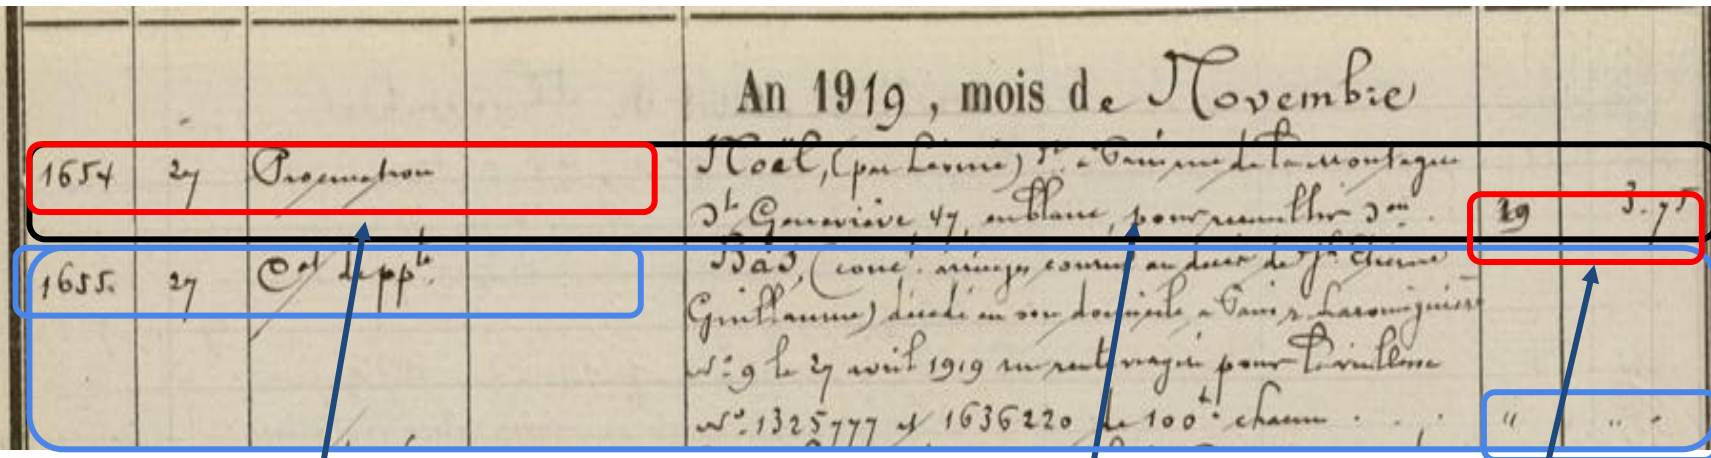 An 1919, mois de Novembre
1654 27 Procuration Noël, (par ) dt à Paris rue de la Montagne
Ste Geneviève 47, en blanc, pour recueillir don. 29 3.75
1655. 27 Cat de ppté. Bas, (conc. arrérages courus au décès de Jn Etienne
Guillaume) décédé en son domicile à Paris r. Laromiguière
No 9 le 27 avril 1919 sur rente viagère pour la vieillesse
Nos 1325777 et 1636220 de 100f chacun . . . " " "